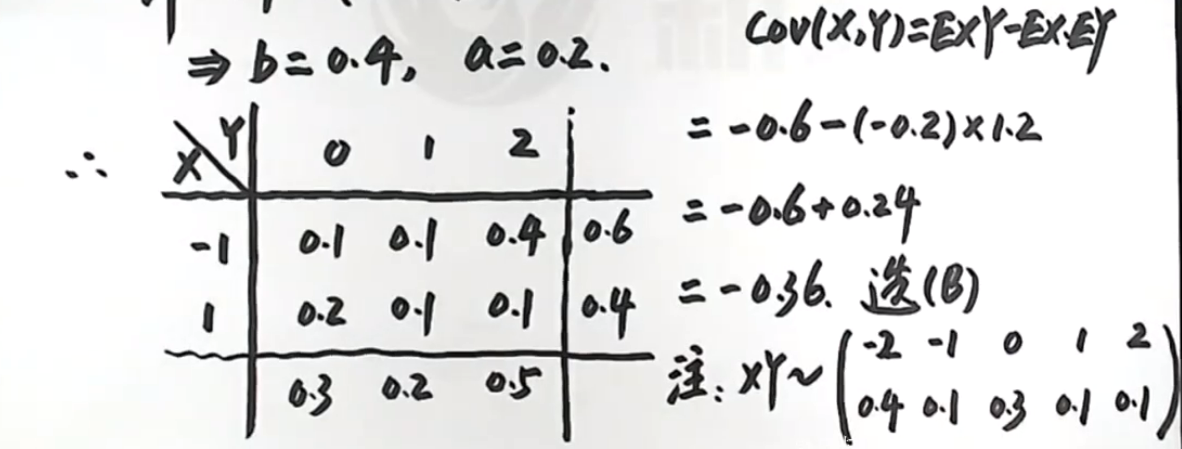 ⇒ b=0.4, a=0.2.
∴
X Y 0 1 2
-1 0.1 0.1 0.4 0.6
1 0.2 0.1 0.1 0.4
0.3 0.2 0.5
Cov(X,Y)=EXY-EX.EY
=-0.6-(-0.2)×1.2
=-0.6+0.24
=-0.36. 选(B)
注: XY~
-2 -1 0 1 2
0.4 0.1 0.3 0.1 0.1